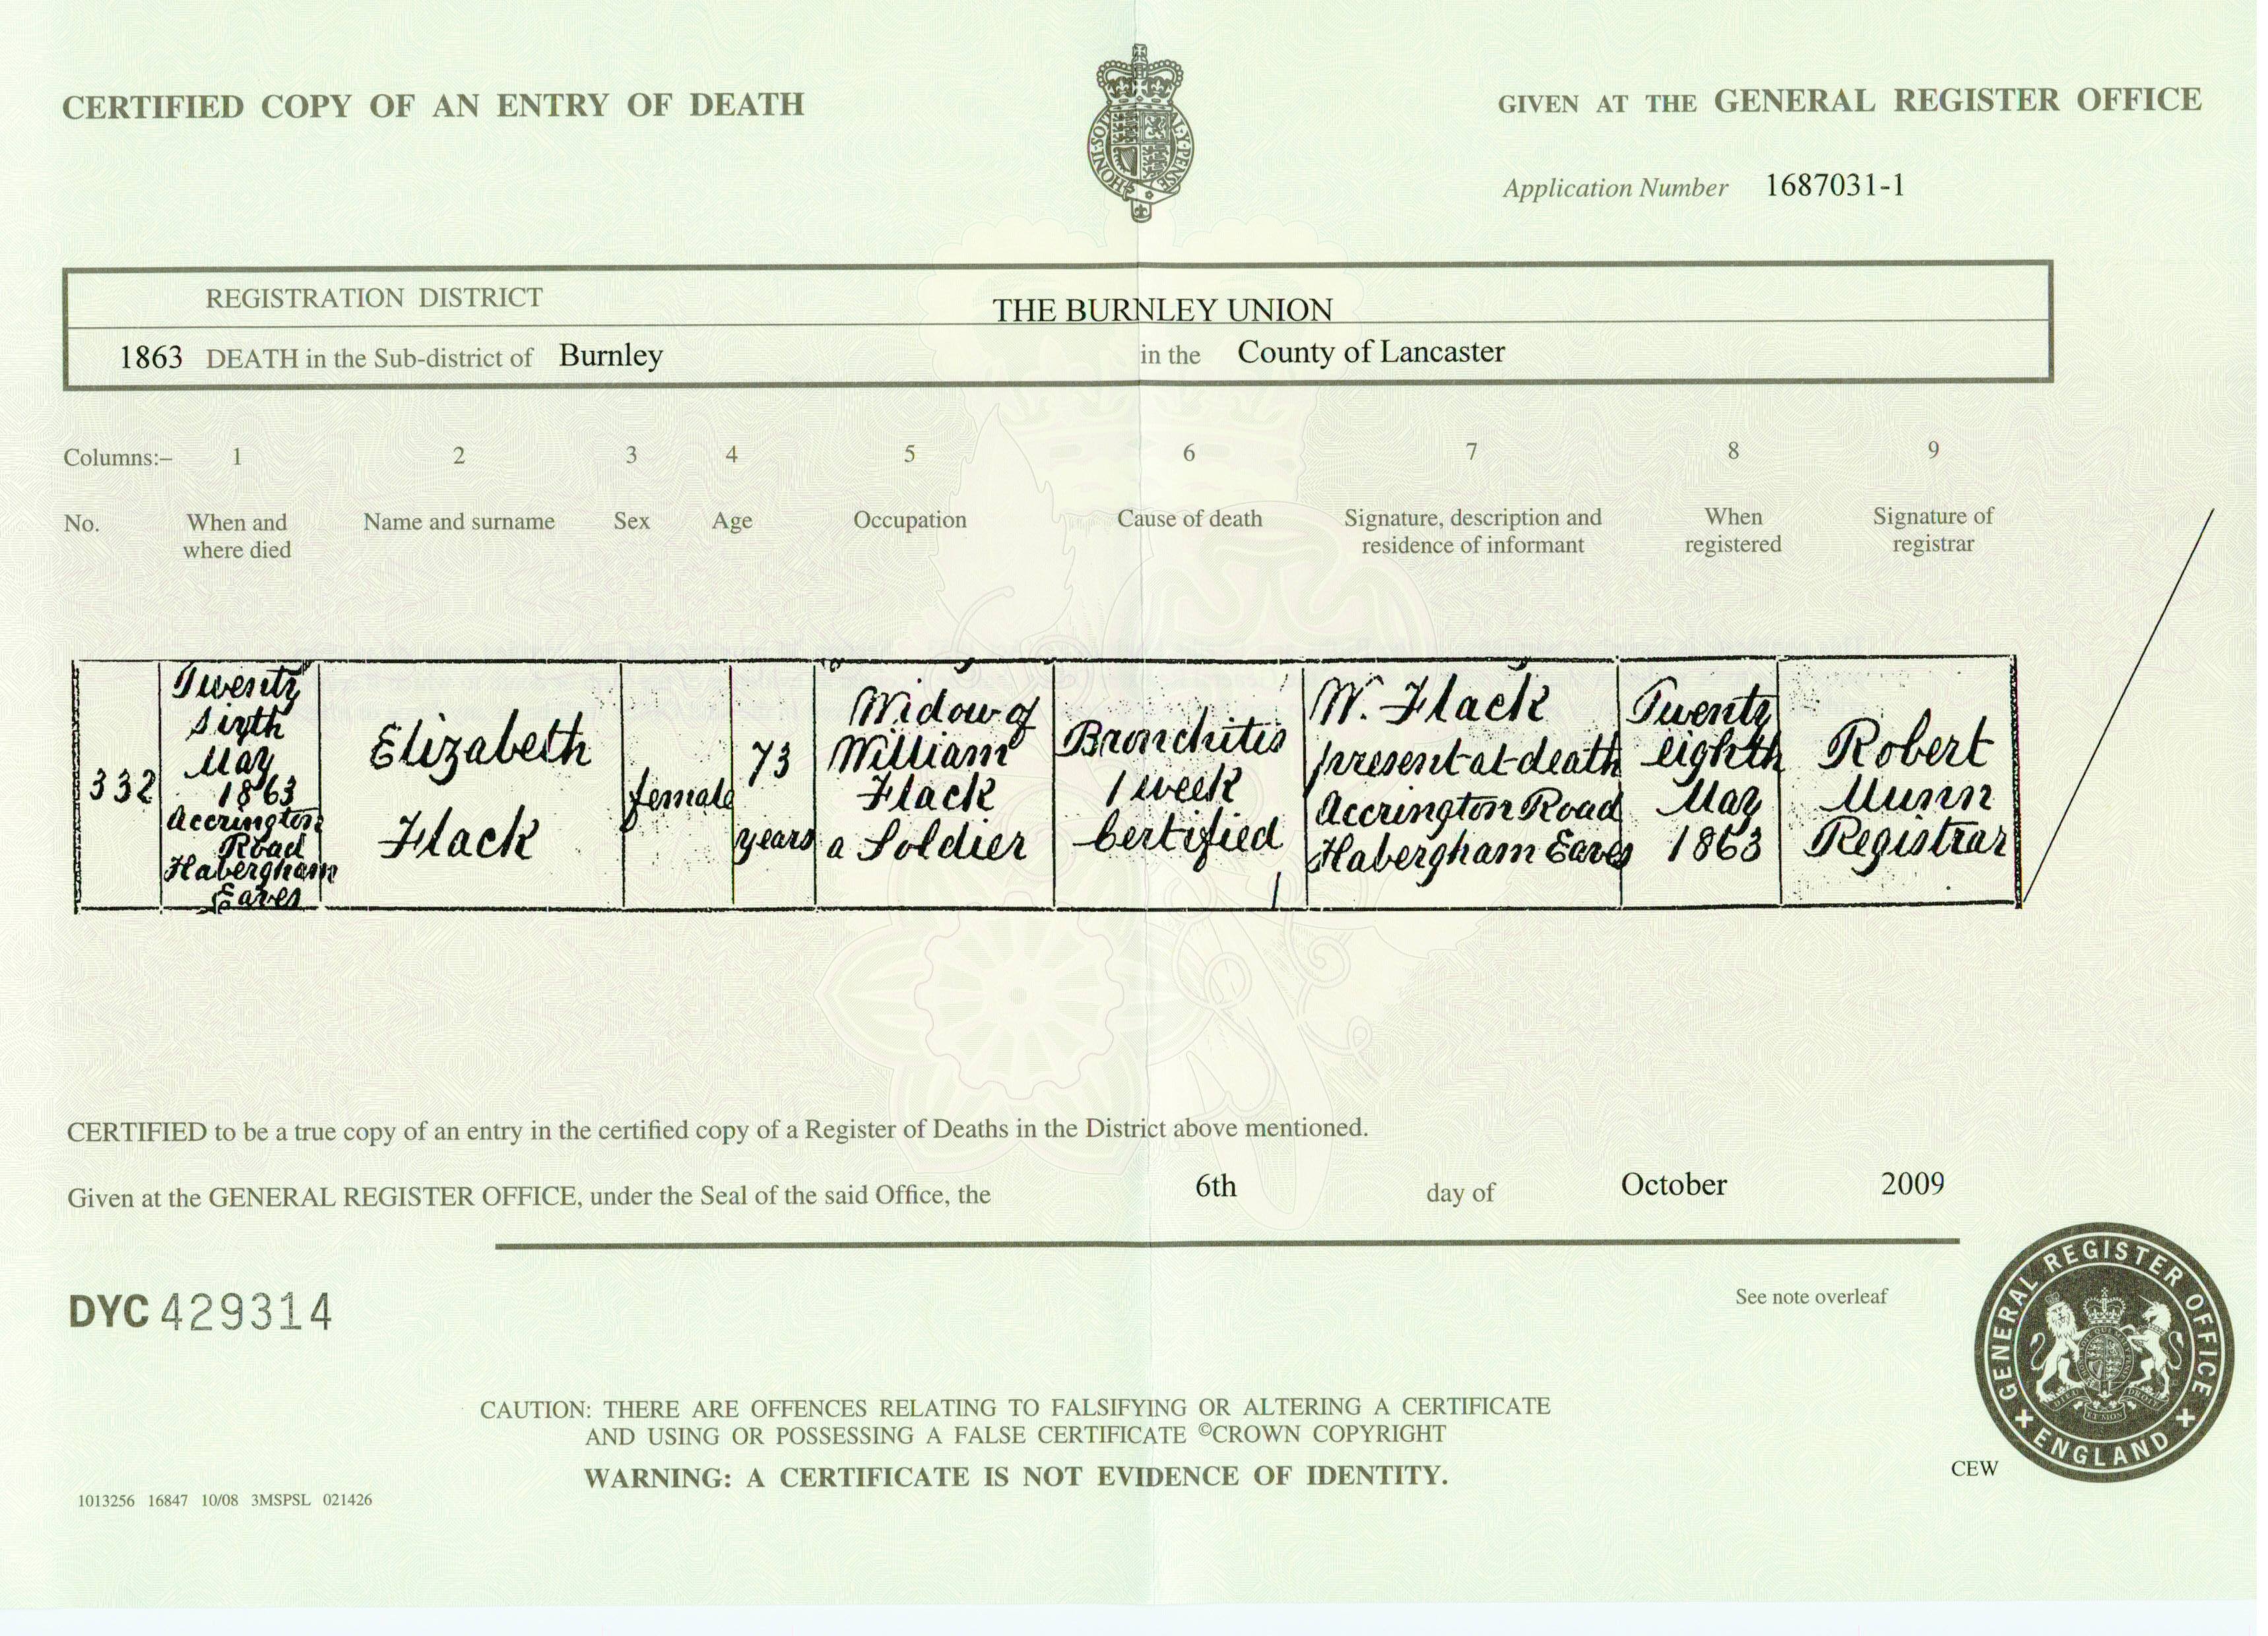 CERTIFIED COPY OF AN ENTRY OF DEATH
GIVEN AT THE GENERAL REGISTER OFFICE
HONI·SOI
AL·Y·PENSE
Application Number 1687031-1
REGISTRATION DISTRICT THE BURNLEY UNION
1863 DEATH in the Sub-district of Burnley in the County of Lancaster
Columns:– 1 2 3 4 5 6 7 8 9
No.
When and
where died
Name and surname
Sex
Age
Occupation
Cause of death
Signature, description and
residence of informant
When
registered
Signature of
registrar
332
Twenty
Sixth
May
1863
Accrington
Road
Habergham
Eaves
Elizabeth
Flack
female
73
years
Widow of
William
Flack
a Soldier
Bronchitis
1 week
Certified
W. Flack
present at death
Accrington Road
Habergham Eaves
Twenty
eighth
May
1863
Robert
Munn
Registrar
CERTIFIED to be a true copy of an entry in the certified copy of a Register of Deaths in the District above mentioned.
Given at the GENERAL REGISTER OFFICE, under the Seal of the said Office, the 6th day of October 2009
DYC 429314
See note overleaf
GENERAL REGISTER OFFICE
ENGLAND
CAUTION: THERE ARE OFFENCES RELATING TO FALSIFYING OR ALTERING A CERTIFICATE
AND USING OR POSSESSING A FALSE CERTIFICATE ©CROWN COPYRIGHT
WARNING: A CERTIFICATE IS NOT EVIDENCE OF IDENTITY.
CEW
1013256 16847 10/08 3MSPSL 021426